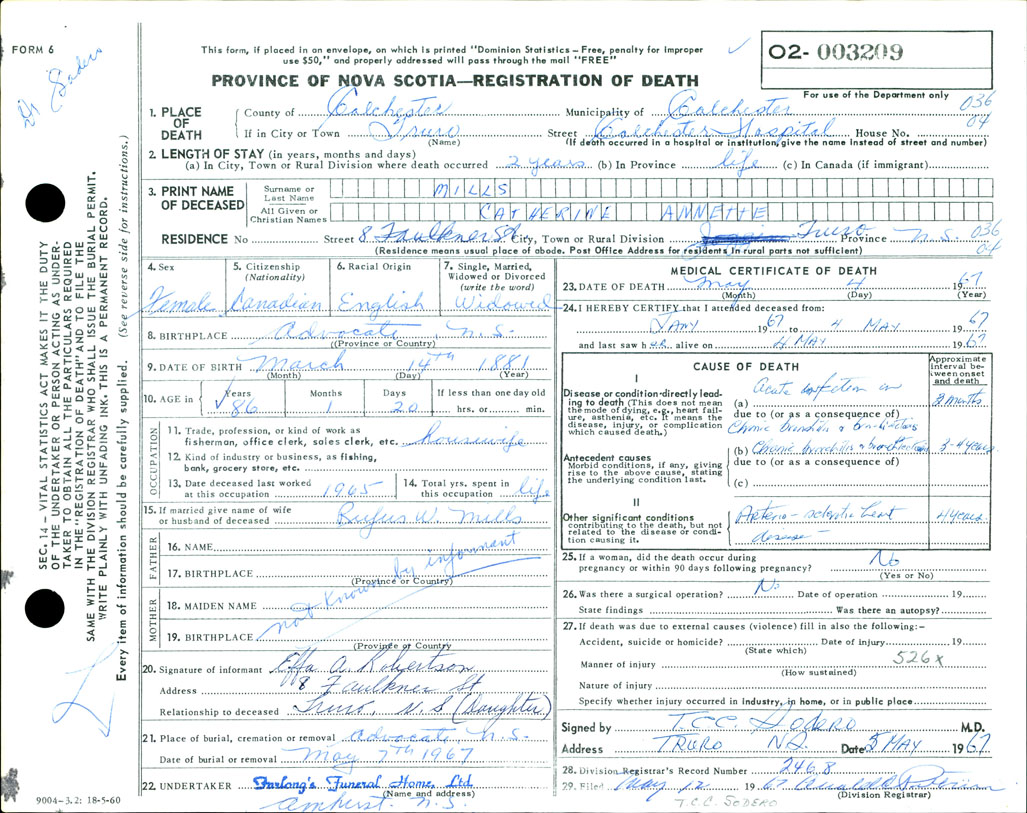 FORM 6
Dr Sodero
This form, if placed in an envelope, on which is printed "Dominion Statistics – Free, penalty for improper
use $50," and properly addressed will pass through the mail "FREE"
02- 003209
For use of the Department only
PROVINCE OF NOVA SCOTIA—REGISTRATION OF DEATH
036
04
1. PLACE OF DEATH
County of Colchester Municipality of Colchester
If in City or Town Truro Street Colchester Hospital House No.
(Name) (If death occurred in a hospital or institution, give the name instead of street and number)
2. LENGTH OF STAY (in years, months and days)
(a) In City, Town or Rural Division where death occurred 2 years (b) In Province life (c) In Canada (if immigrant)
3. PRINT NAME OF DECEASED
Surname or Last Name MILLS
All Given or Christian Names CATHERINE ANNETTE
RESIDENCE No Street 8 Faulkner St City, Town or Rural Division Truro Province N.S. 036
04
(Residence means usual place of abode. Post Office Address for residents in rural parts not sufficient)
4. Sex
Female
5. Citizenship
(Nationality)
Canadian
6. Racial Origin
English
7. Single, Married,
Widowed or Divorced
(write the word)
Widowed
8. BIRTHPLACE Advocate N.S.
(Province or Country)
9. DATE OF BIRTH March 14th 1881
(Month) (Day) (Year)
10. AGE in Years Months Days If less than one day old
86 1 20 hrs. or min.
OCCUPATION
11. Trade, profession, or kind of work as
fisherman, office clerk, sales clerk, etc. housewife
12. Kind of industry or business, as fishing,
bank, grocery store, etc.
13. Date deceased last worked
at this occupation 1965
14. Total yrs. spent in
this occupation life
15. If married give name of wife
or husband of deceased Rufus W. Mills
FATHER
16. NAME
17. BIRTHPLACE
(Province or Country)
MOTHER
18. MAIDEN NAME
19. BIRTHPLACE
(Province or Country
not known by informant
20. Signature of informant Effa A. Robertson
Address 8 Faulkner St
Relationship to deceased Truro, N.S (Daughter)
21. Place of burial, cremation or removal Advocate N.S.
Date of burial or removal May 7th 1967
22. UNDERTAKER Furlong's Funeral Home, Ltd.
(Name and address)
Amherst N.S.
MEDICAL CERTIFICATE OF DEATH
23. DATE OF DEATH May 4 1967
(Month) (Day) (Year)
24. I HEREBY CERTIFY that I attended deceased from:
JANY 1967 to 4 MAY 1967
and last saw her alive on 4 MAY 1967
CAUSE OF DEATH
Approximate
interval be-
tween onset
and death
I
Disease or condition directly lead-
ing to death (This does not mean
the mode of dying, e.g., heart fail-
ure, asthenia, etc. It means the
disease, injury, or complication
which caused death.)
(a) Acute infection on months
due to (or as a consequence of)
Chronic
Antecedent causes
Morbid conditions, if any, giving
rise to the above cause, stating
the underlying condition last.
(b) Chronic bronchitis 3-4 years
due to (or as a consequence of)
(c)
II
Other significant conditions
contributing to the death, but not
related to the disease or condi-
tion causing it.
Arterio-sclerotic heart 4 years.
disease -
25. If a woman, did the death occur during
pregnancy or within 90 days following pregnancy? No
(Yes or No)
26. Was there a surgical operation? No Date of operation 19
State findings Was there an autopsy?
27. If death was due to external causes (violence) fill in also the following:–
Accident, suicide or homicide? Date of injury 19
(State which)
526x
Manner of injury
(How sustained)
Nature of injury
Specify whether injury occurred in industry, in home, or in public place
Signed by T.C.C. SODERO M.D.
Address TRURO NS. Date 5 MAY 1967
28. Division Registrar's Record Number 2468
29. Filed May 12 1967
(Division Registrar)
T.C.C. SODERO
SEC. 14 – VITAL STATISTICS ACT MAKES IT THE DUTY
OF THE UNDERTAKER OR PERSON ACTING AS UNDER-
TAKER TO OBTAIN ALL THE PARTICULARS REQUIRED
IN THE "REGISTRATION OF DEATH" AND TO FILE THE
SAME WITH THE DIVISION REGISTRAR WHO SHALL ISSUE THE BURIAL PERMIT.
WRITE PLAINLY WITH UNFADING INK. THIS IS A PERMANENT RECORD.
Every item of information should be carefully supplied. (See reverse side for instructions.)
9004–3.2: 18-5-60